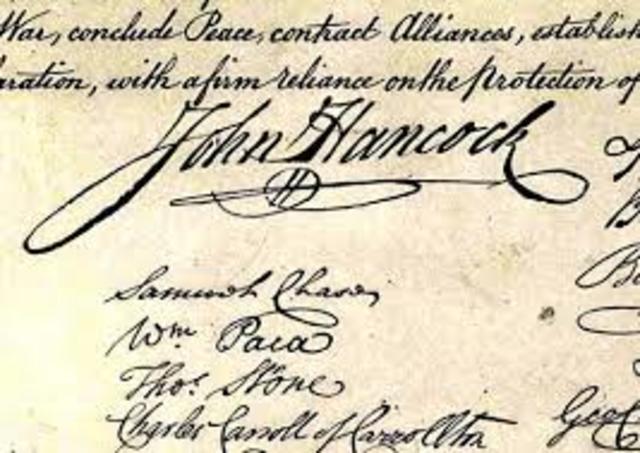 War, conclude Peace, contract Alliances, establish
laration, with a firm reliance on the Protection of
John Hancock
Samuel Chase
Wm Paca
Thos. Stone
Charles Carroll of Carrollton
Geo